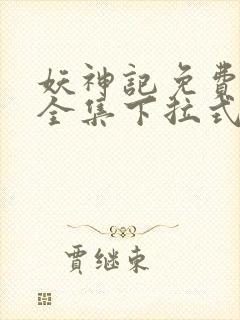 妖神記免費
全集下拉式
賈継東